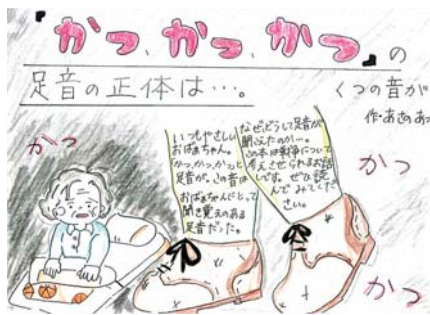 『かつ、かつ、かつ』の
足音の正体は…。
くつの音が
作・あさのあ
かつ
かつ
かつ
いつもやさしい
おばあちゃん。
「かつ、かつ、かつ」と
足音が。この音は
おばあちゃんにとって
聞き覚えのある
足音だった。
なぜ、どうして足音が
聞こえたのか…。
この本は戦争について
考えさせられるお話
です。ぜひ読
んでみてくだ
さい。